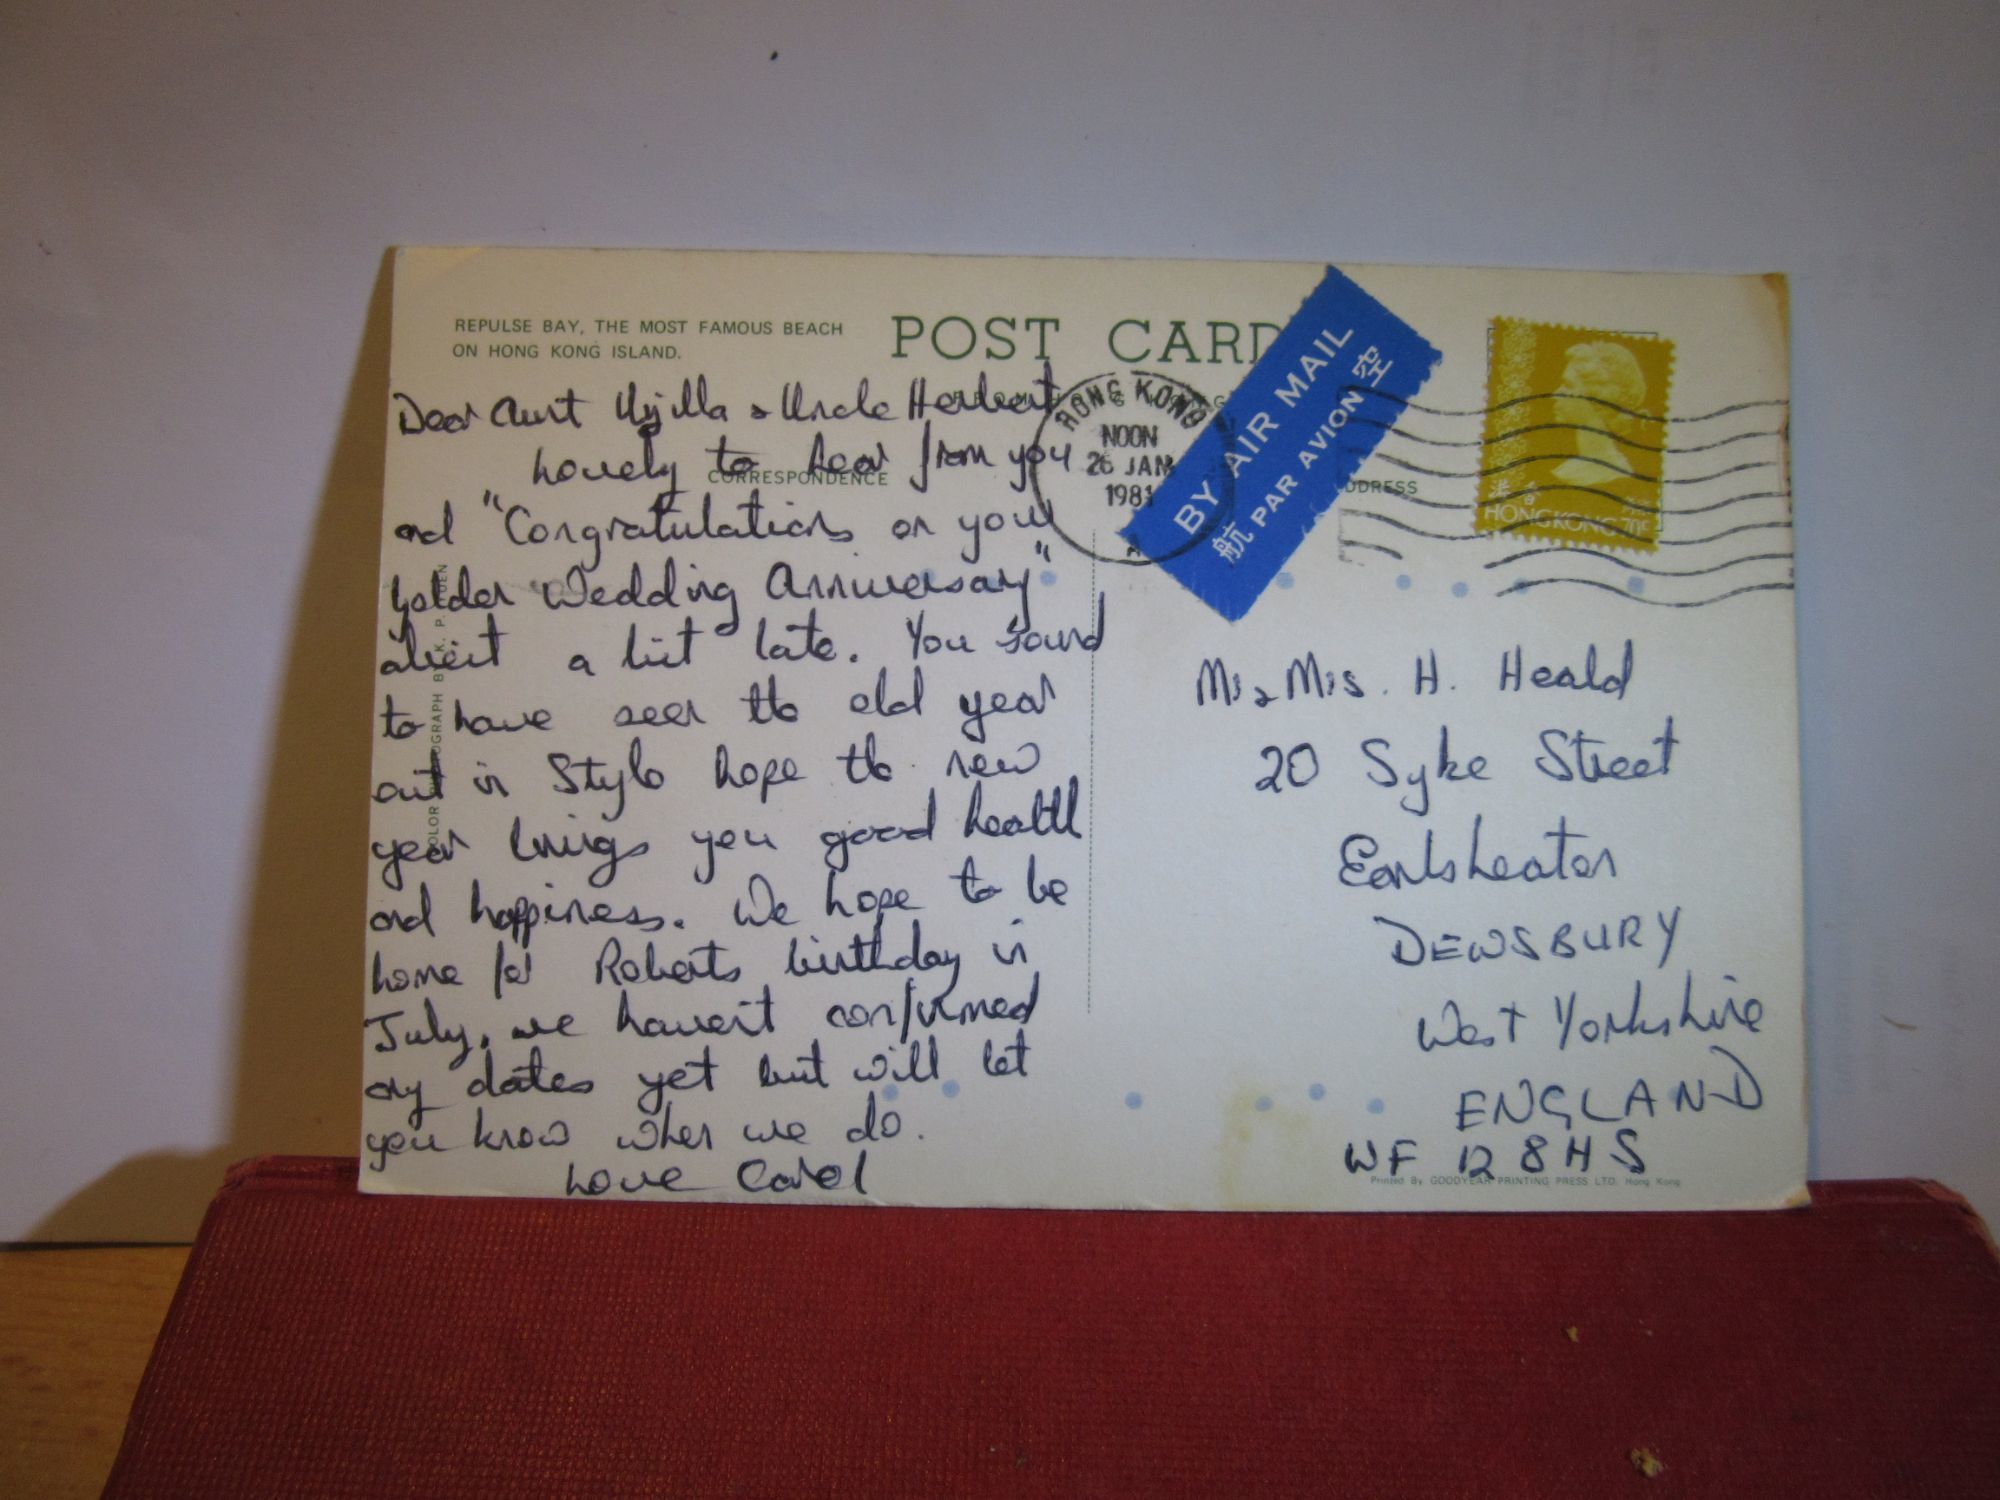 REPULSE BAY, THE MOST FAMOUS BEACH
ON HONG KONG ISLAND.
POST CARD
CORRESPONDENCE
Dear Aunt & Uncle Herbert
Lovely to hear from you
and "Congratulations on your
Golden Wedding Anniversary"
albeit a bit late. You sound
to have seen the old year
out in Style hope the new
year brings you good health
and happiness. We hope to be
home for Roberts birthday in
July, we haven't confirmed
any dates yet but will let
you know when we do.
Love Carol
HONG KONG
NOON
26 JAN
1981
A
BY AIR MAIL
PAR AVION 航空
DDRESS
香港
HONG KONG 70c
Mr & Mrs. H. Heald
20 Syke Street
Earlsheaton
DEWSBURY
West Yorkshire
ENGLAND
WF 12 8HS
Printed By GOODYEAR PRINTING PRESS LTD. Hong Kong